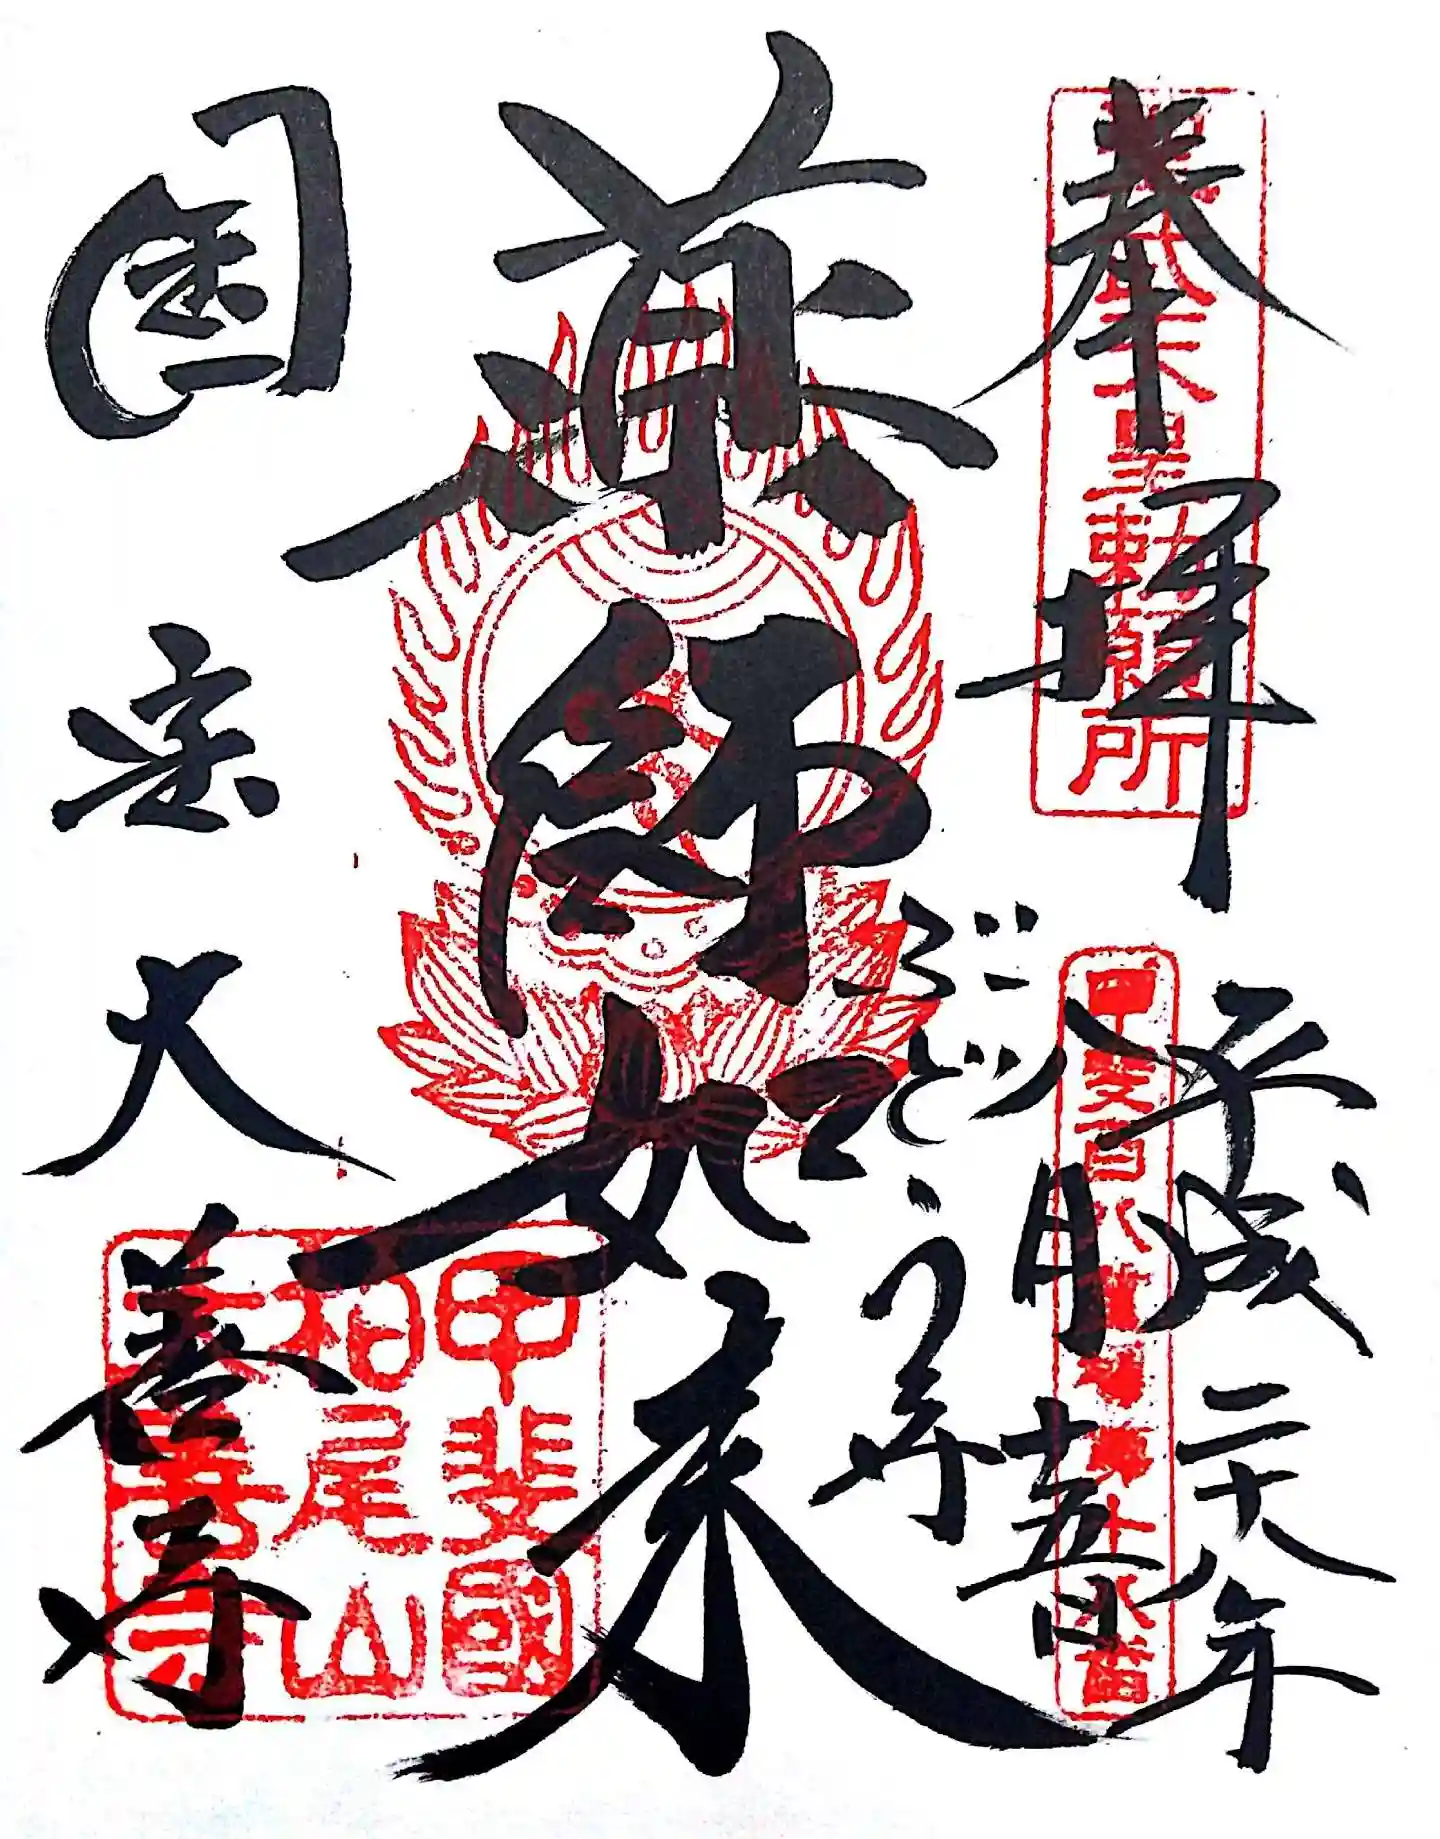 奉拝
聖武天皇勅願所
平成二十八年
八月十五日
甲斐百八霊場第十八番
ぶどう寺
薬師如来
国宝大善寺
甲斐國
柏尾山
大善寺